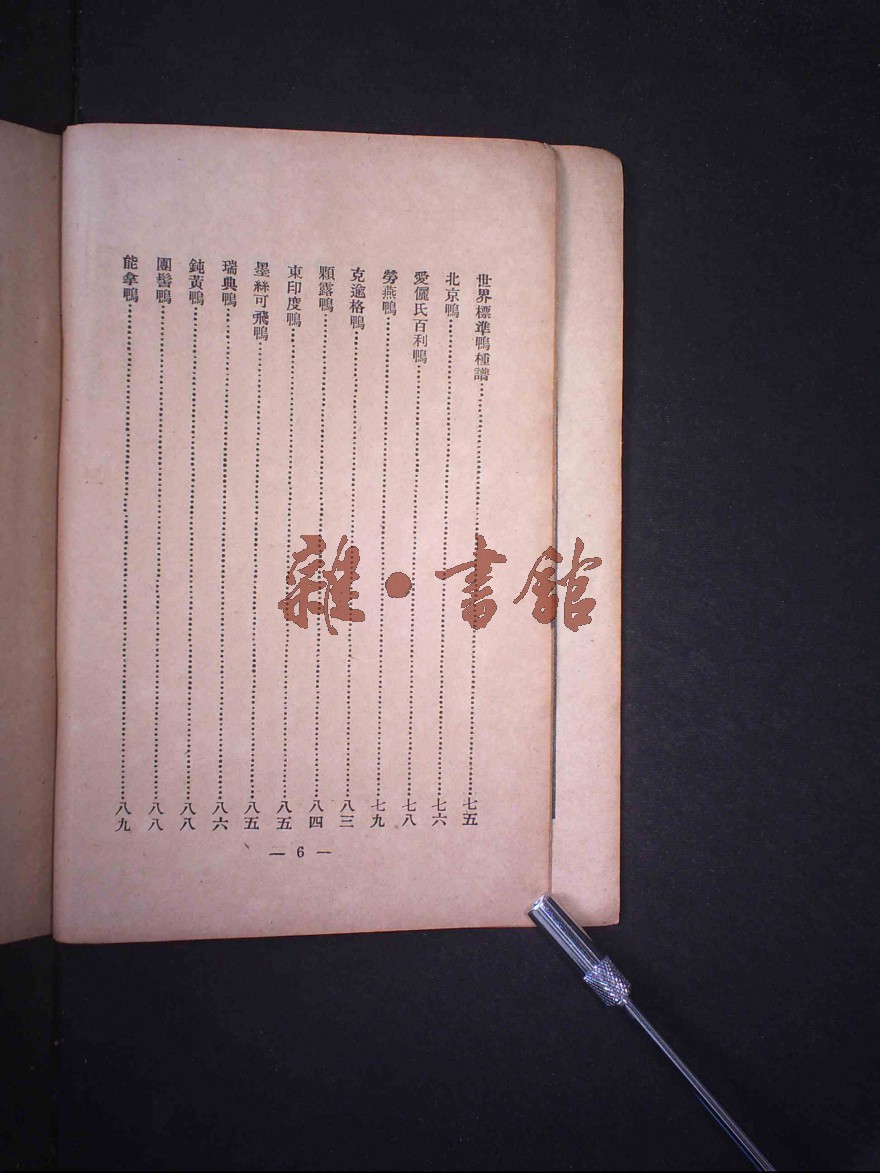 世界標準鴨種譜……七五
北京鴨……七六
愛儷氏百利鴨……七八
勞燕鴨……七九
克逾格鴨……八三
顆露鴨……八四
東印度鴨……八五
墨絲可飛鴨……八五
瑞典鴨……八六
鈍黃鴨……八八
團髻鴨……八八
能拿鴨……八九
— 6 —
雜·書館